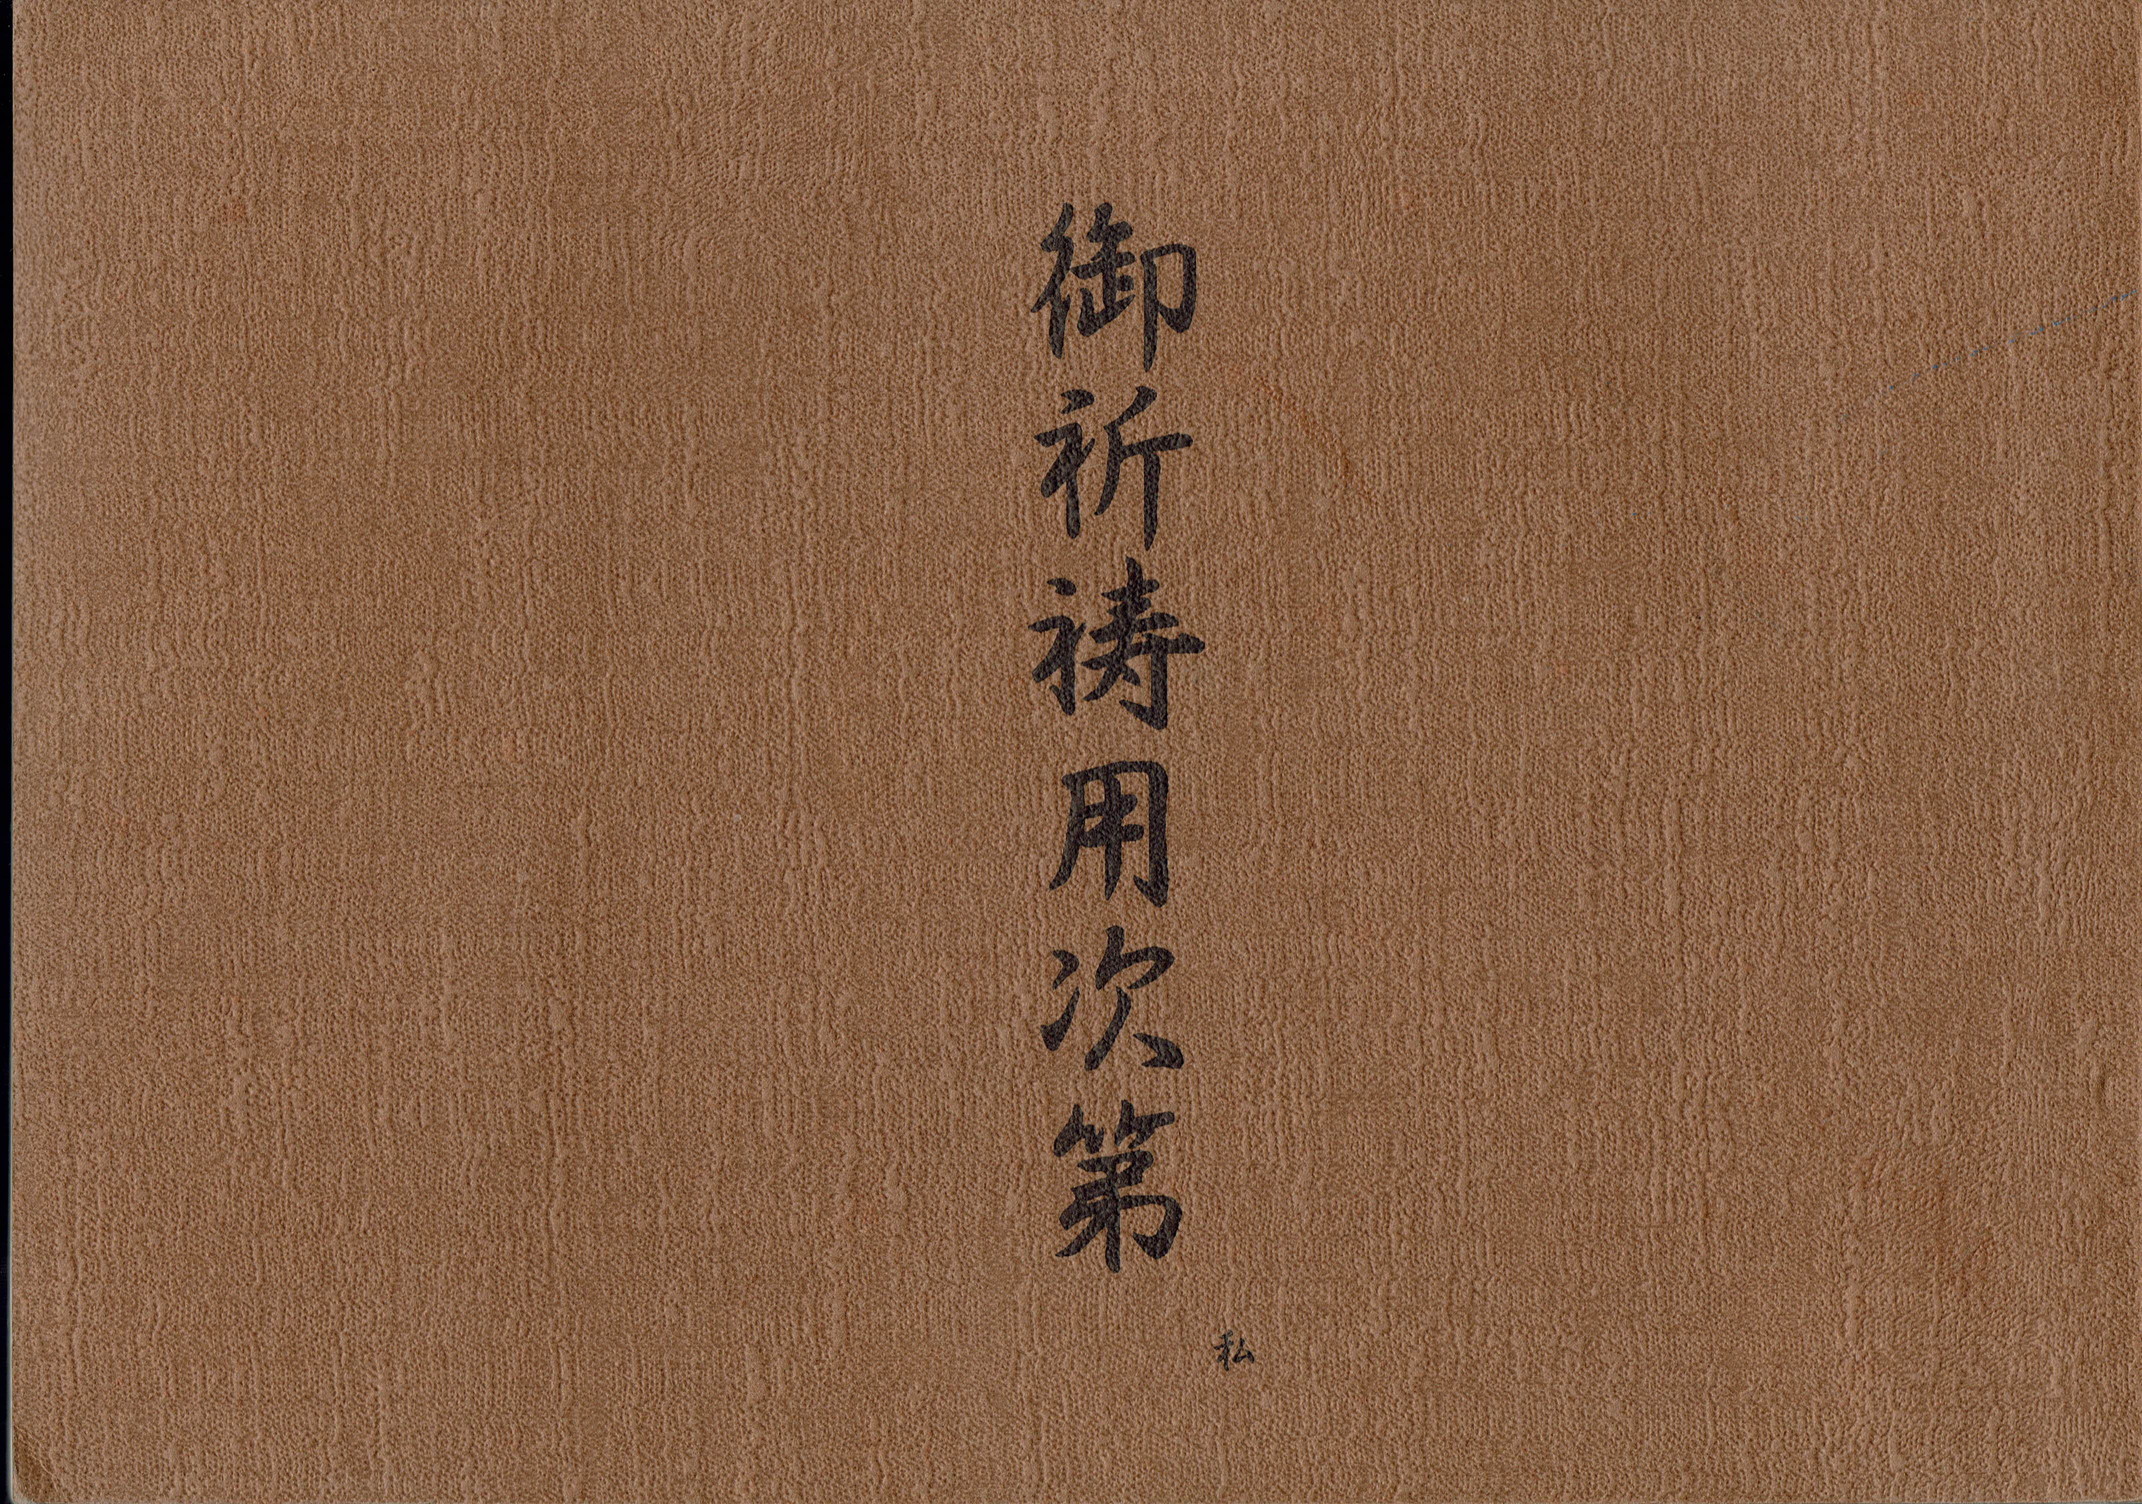 御祈祷用次第
私